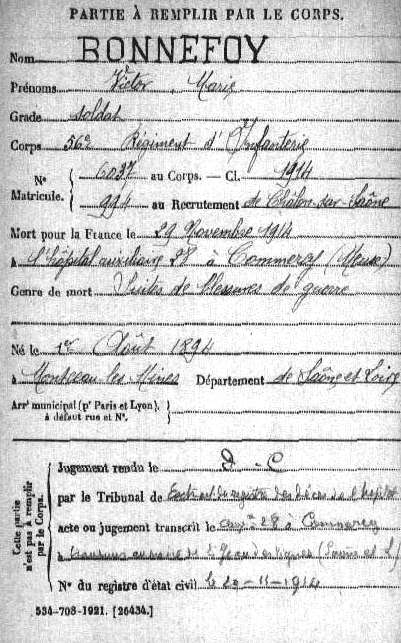 PARTIE À REMPLIR PAR LE CORPS.
Nom BONNEFOY
Prénoms Victor, Marie
Grade soldat
Corps 56e Régiment d'Infanterie
N° Matricule. { 6037 au Corps. — Cl. 1914
994 au Recrutement de Châlon-sur-Saône
Mort pour la France le 29 Novembre 1914
à l'hôpital auxiliaire 28 à Commercy (Meuse)
Genre de mort Suites de blessures de guerre
Né le 1er Août 1894
à Montceau les Mines Département de Saône et Loire
Arrt municipal (pr Paris et Lyon), à défaut rue et N°. {
Cette partie n'est pas à remplir par le Corps.
Jugement rendu le D. C
par le Tribunal de Extrait du registre des décès de l'hôpital
acte ou jugement transcrit le 28 à Commercy
à
N° du registre d'état civil le 29-11-1914
534-708-1921. [26434.]